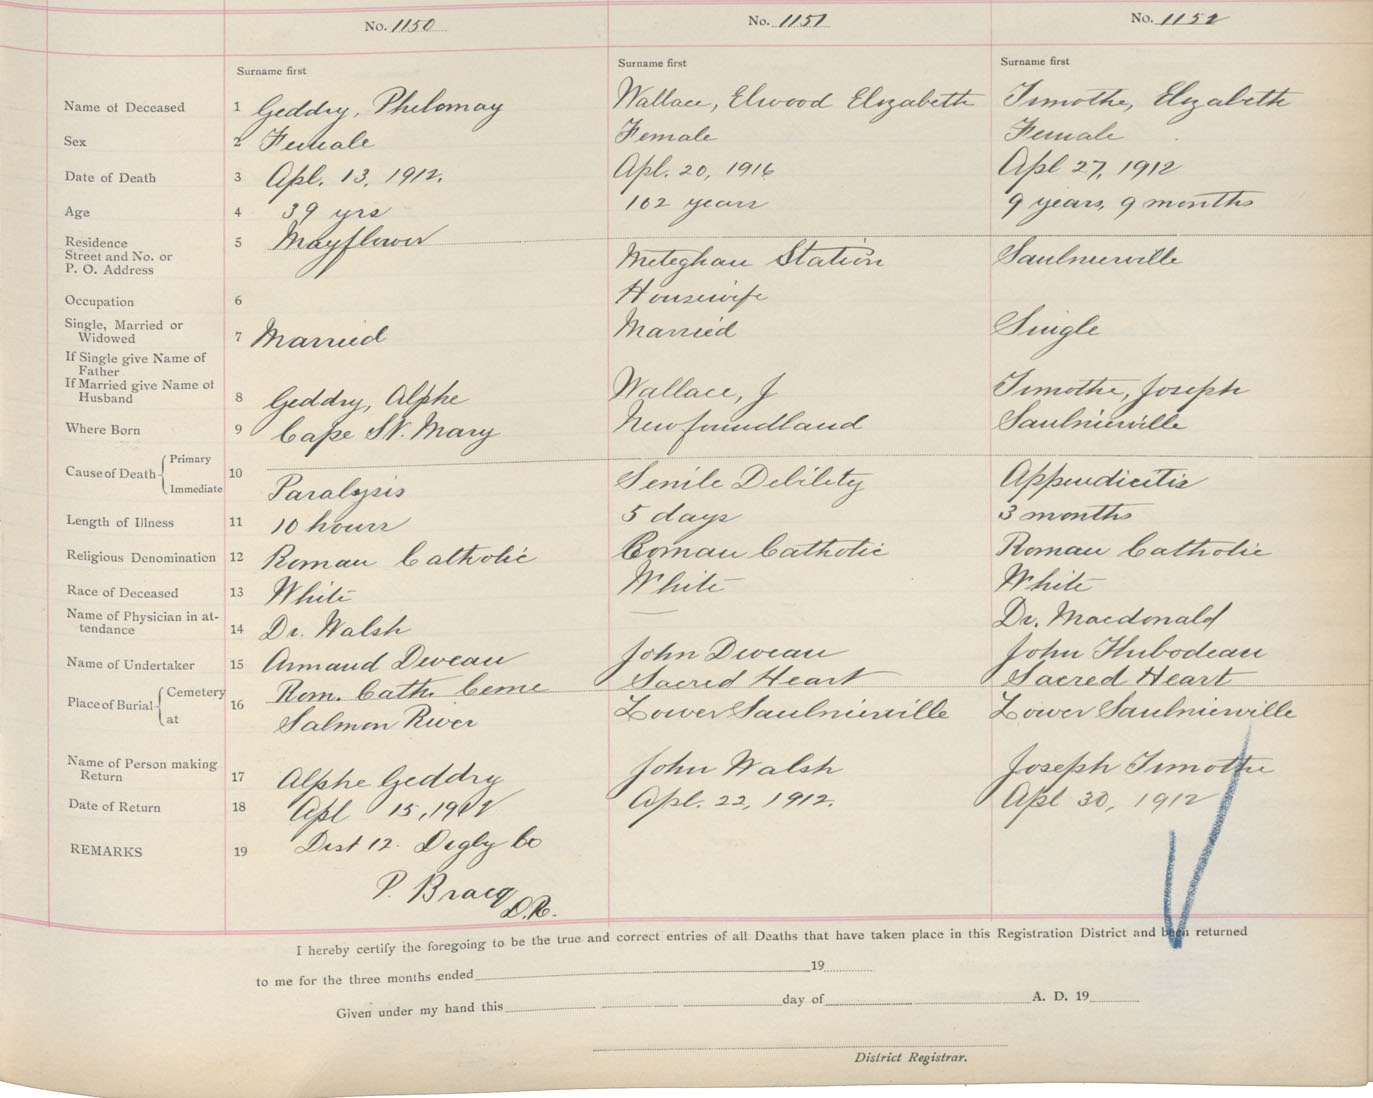 No. 1150 No. 1151 No. 1152
Surname first Surname first Surname first
Name of Deceased 1 Geddry, Philomay Wallace, Elwood Elizabeth Timothe, Elizabeth
Sex 2 Female Female Female
Date of Death 3 Apl. 13, 1912. Apl. 20, 1916 Apl 27, 1912
Age 4 39 yrs 102 years 9 years, 9 months
Residence
Street and No. or
P. O. Address 5 Mayflower Meteghan Station Saulnierville
Occupation 6 Housewife
Single, Married or
Widowed 7 Married Married Single
If Single give Name of
Father
If Married give Name of
Husband 8 Geddry, Alphe Wallace, J Timothe, Joseph
Where Born 9 Cape St. Mary Newfoundland Saulnierville
Cause of Death Primary
Immediate 10 Paralysis Senile Debility Appendicitis
Length of Illness 11 10 hours 5 days 3 months
Religious Denomination 12 Roman Catholic Roman Catholic Roman Catholic
Race of Deceased 13 White White White
Name of Physician in at-
tendance 14 Dr. Walsh — Dr. Macdonald
Name of Undertaker 15 Armand Deveau John Deveau John Thibodeau
Place of Burial Cemetery 16 Rom. Cath. Ceme Sacred Heart Sacred Heart
at Salmon River Lower Saulnierville Lower Saulnierville
Name of Person making
Return 17 Alphe Geddry John Walsh Joseph Timothe
Date of Return 18 Apl 15, 1912 Apl. 22, 1912. Apl 30, 1912
REMARKS 19 Dist 12. Digby Co
P. Bracq
D.R.
I hereby certify the foregoing to be the true and correct entries of all Deaths that have taken place in this Registration District and been returned
to me for the three months ended 19
Given under my hand this day of A. D. 19
District Registrar.